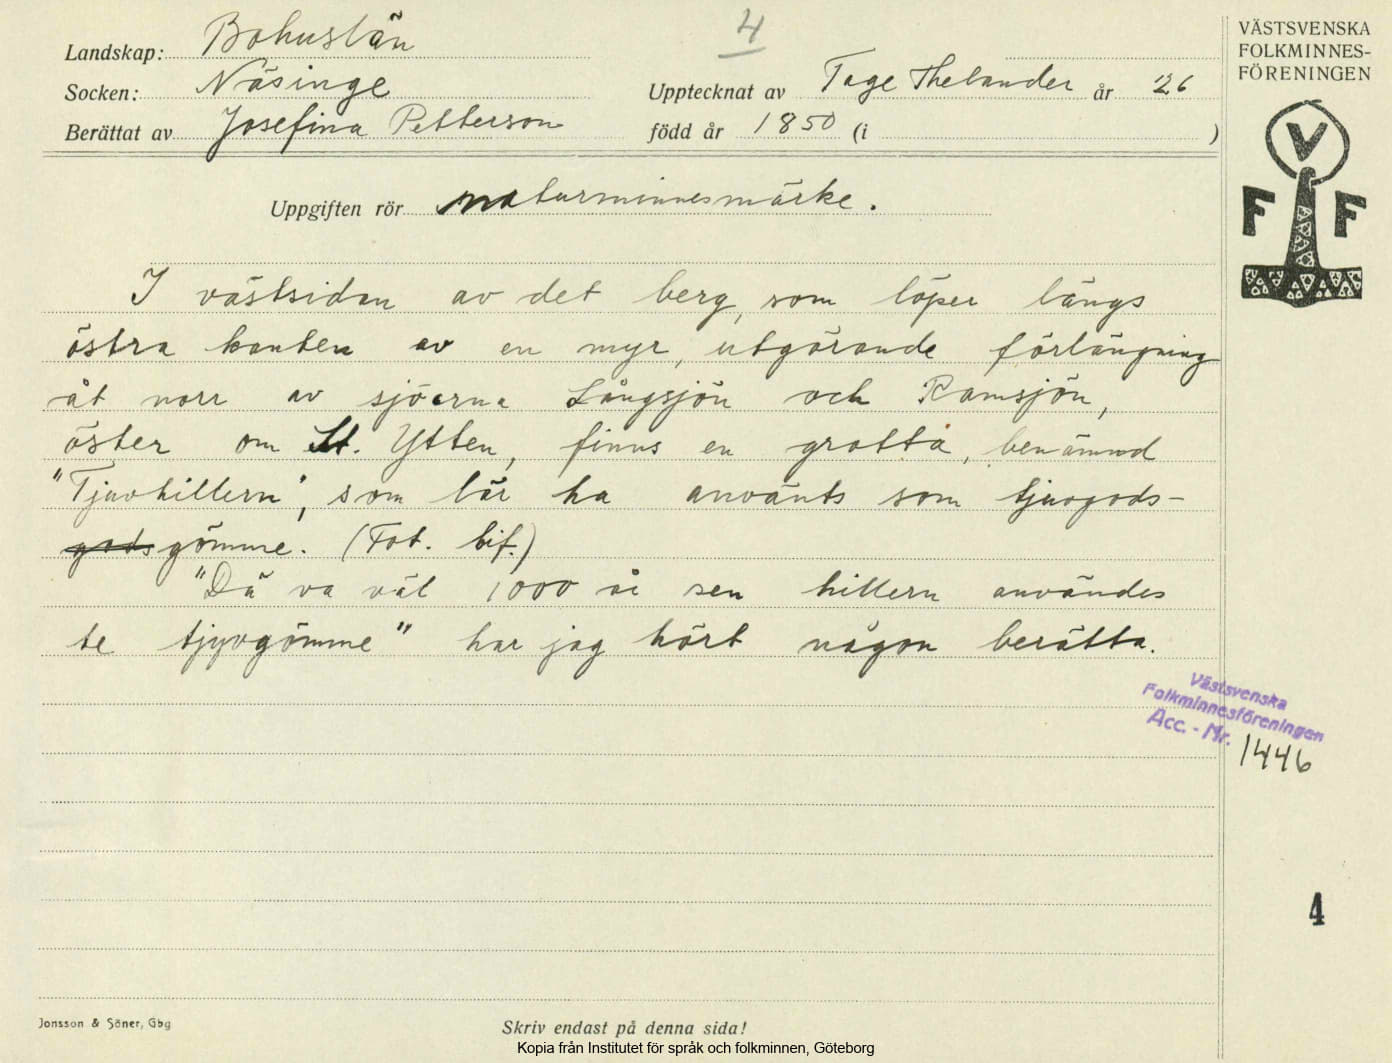 4
Landskap: Bohuslän
Socken: Näsinge
Upptecknat av Tage Thelander år 26
Berättat av Josefina Petterson född år 1850 (i )
VÄSTSVENSKA
FOLKMINNES-
FÖRENINGEN
V
F F
Uppgiften rör naturminnesmärke.
I västsidan av det berg, som löper längs
östra kanten av en myr, utgörande förlängning
åt norr av sjöarna Långsjön och Ramsjön,
öster om St. Ytten, finns en grotta, benämnd
"Tjuvhillern", som lär ha använts som tjuvgods-
gods gömme. (Fot. bif.)
"Dä va väl 1000 år sen hillern användes
te tjyvgömme" har jag hört någon berätta.
Västsvenska
Folkminnesföreningen
Acc. - Nr. 1446
4
Jonsson & Söner, Gbg
Skriv endast på denna sida!
Kopia från Institutet för språk och folkminnen, Göteborg